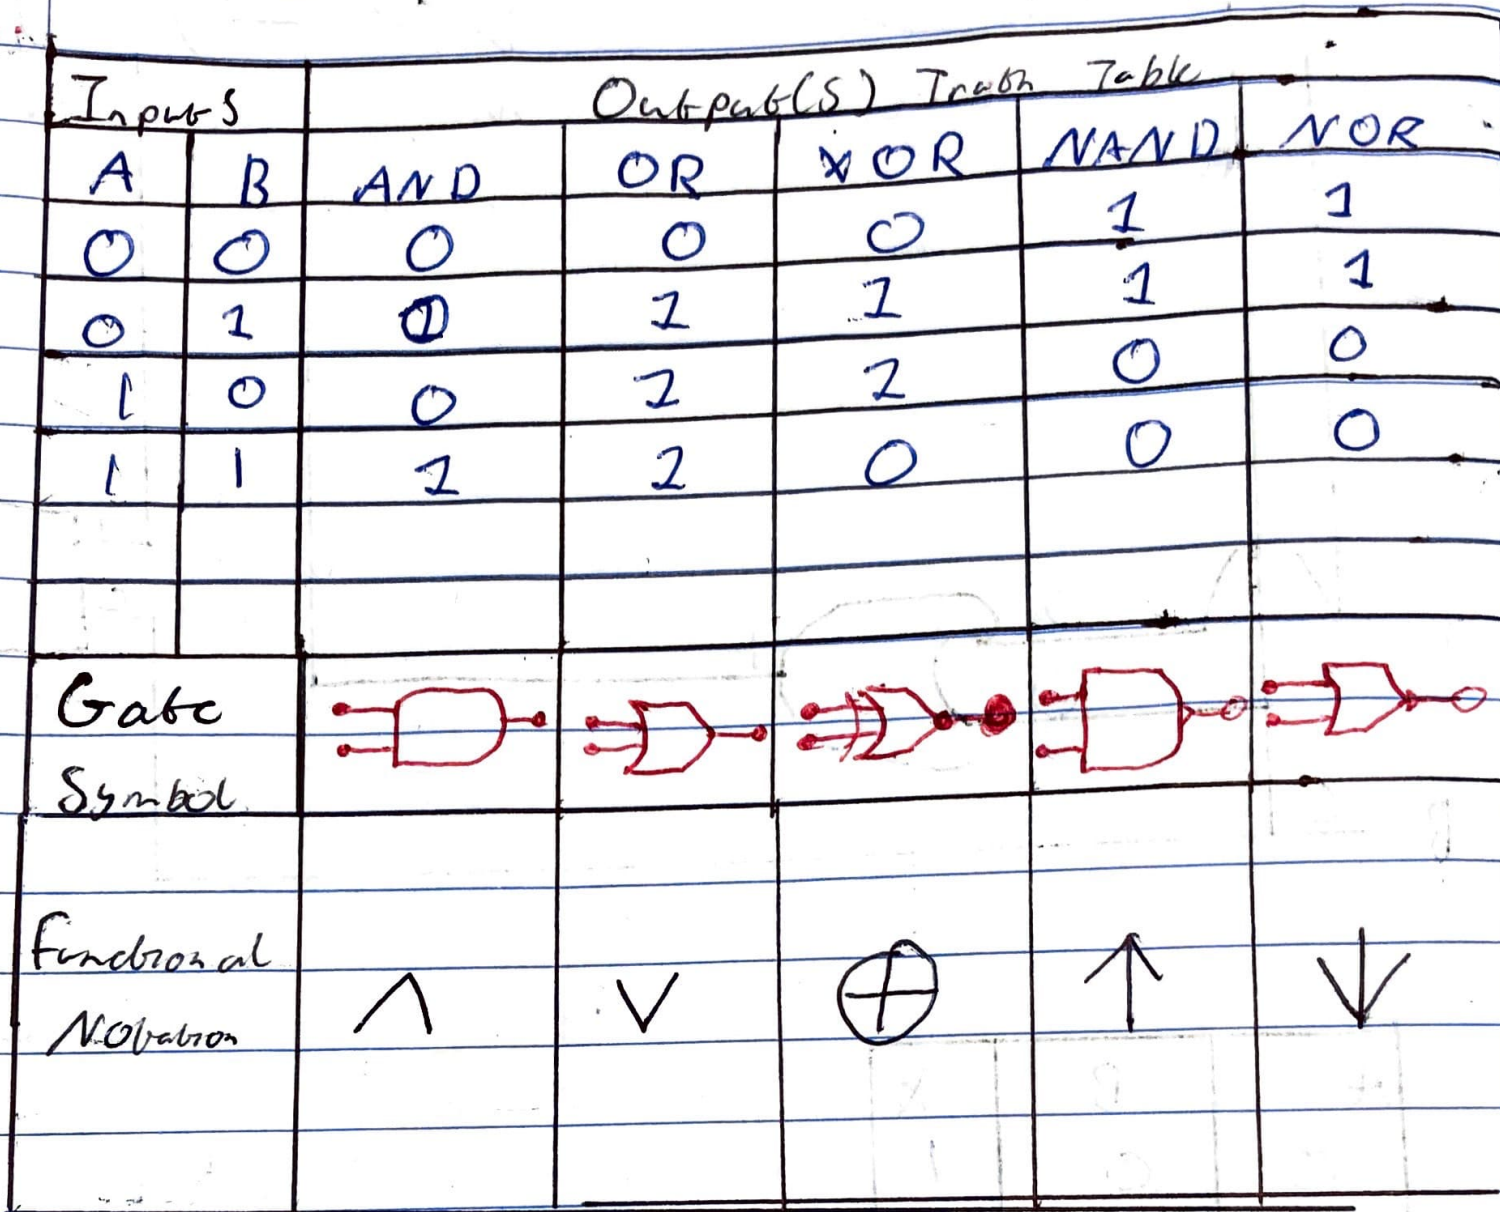 Inputs Output(s) Truth Table
A B AND OR XOR NAND NOR
0 0 0 0 0 1 1
0 1 0 1 1 1 1
1 0 0 1 1 0 0
1 1 1 1 0 0 0
Gate
Symbol
Functional
Notation ∧ ∨ ⊕ ↑ ↓